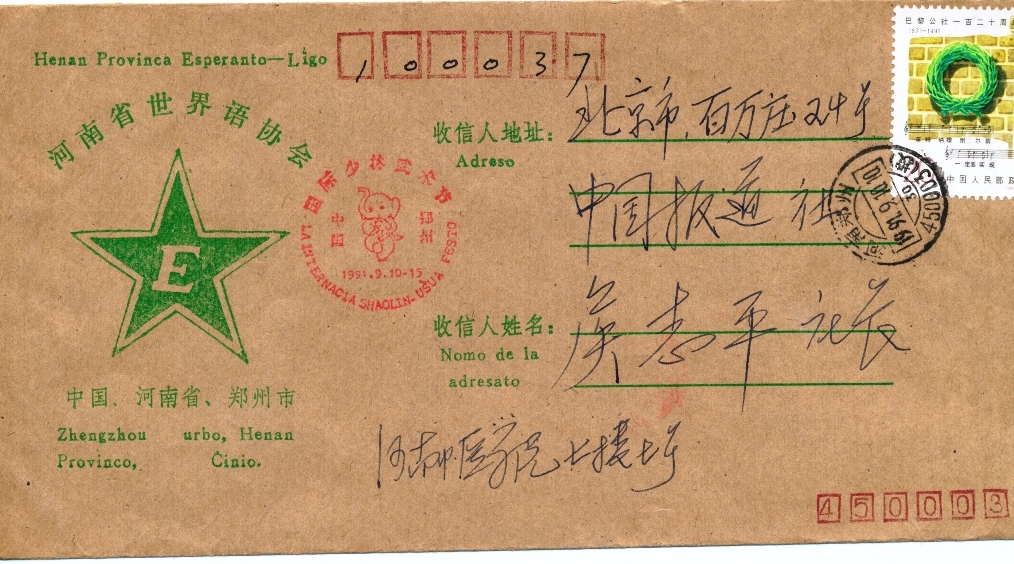 Henan Provinca Esperanto—Ligo
100037
河南省世界语协会
E
中国、河南省、郑州市
Zhengzhou urbo, Henan
Provinco, Ĉinio.
国际少林武术节
中国 郑州
1991.9.10-15
LA INTERNACIA SHAOLIN-UŜUA FESTO
收信人地址:
Adreso
北京市、百万庄24号
中国报道社
收信人姓名:
Nomo de la
adresato
吴志平社长
河南中医学院七楼七号
巴黎公社一百二十周
1871-1991
英特纳雄耐尔就
一定要实现
中国人民邮政
河南郑州
450003
450003